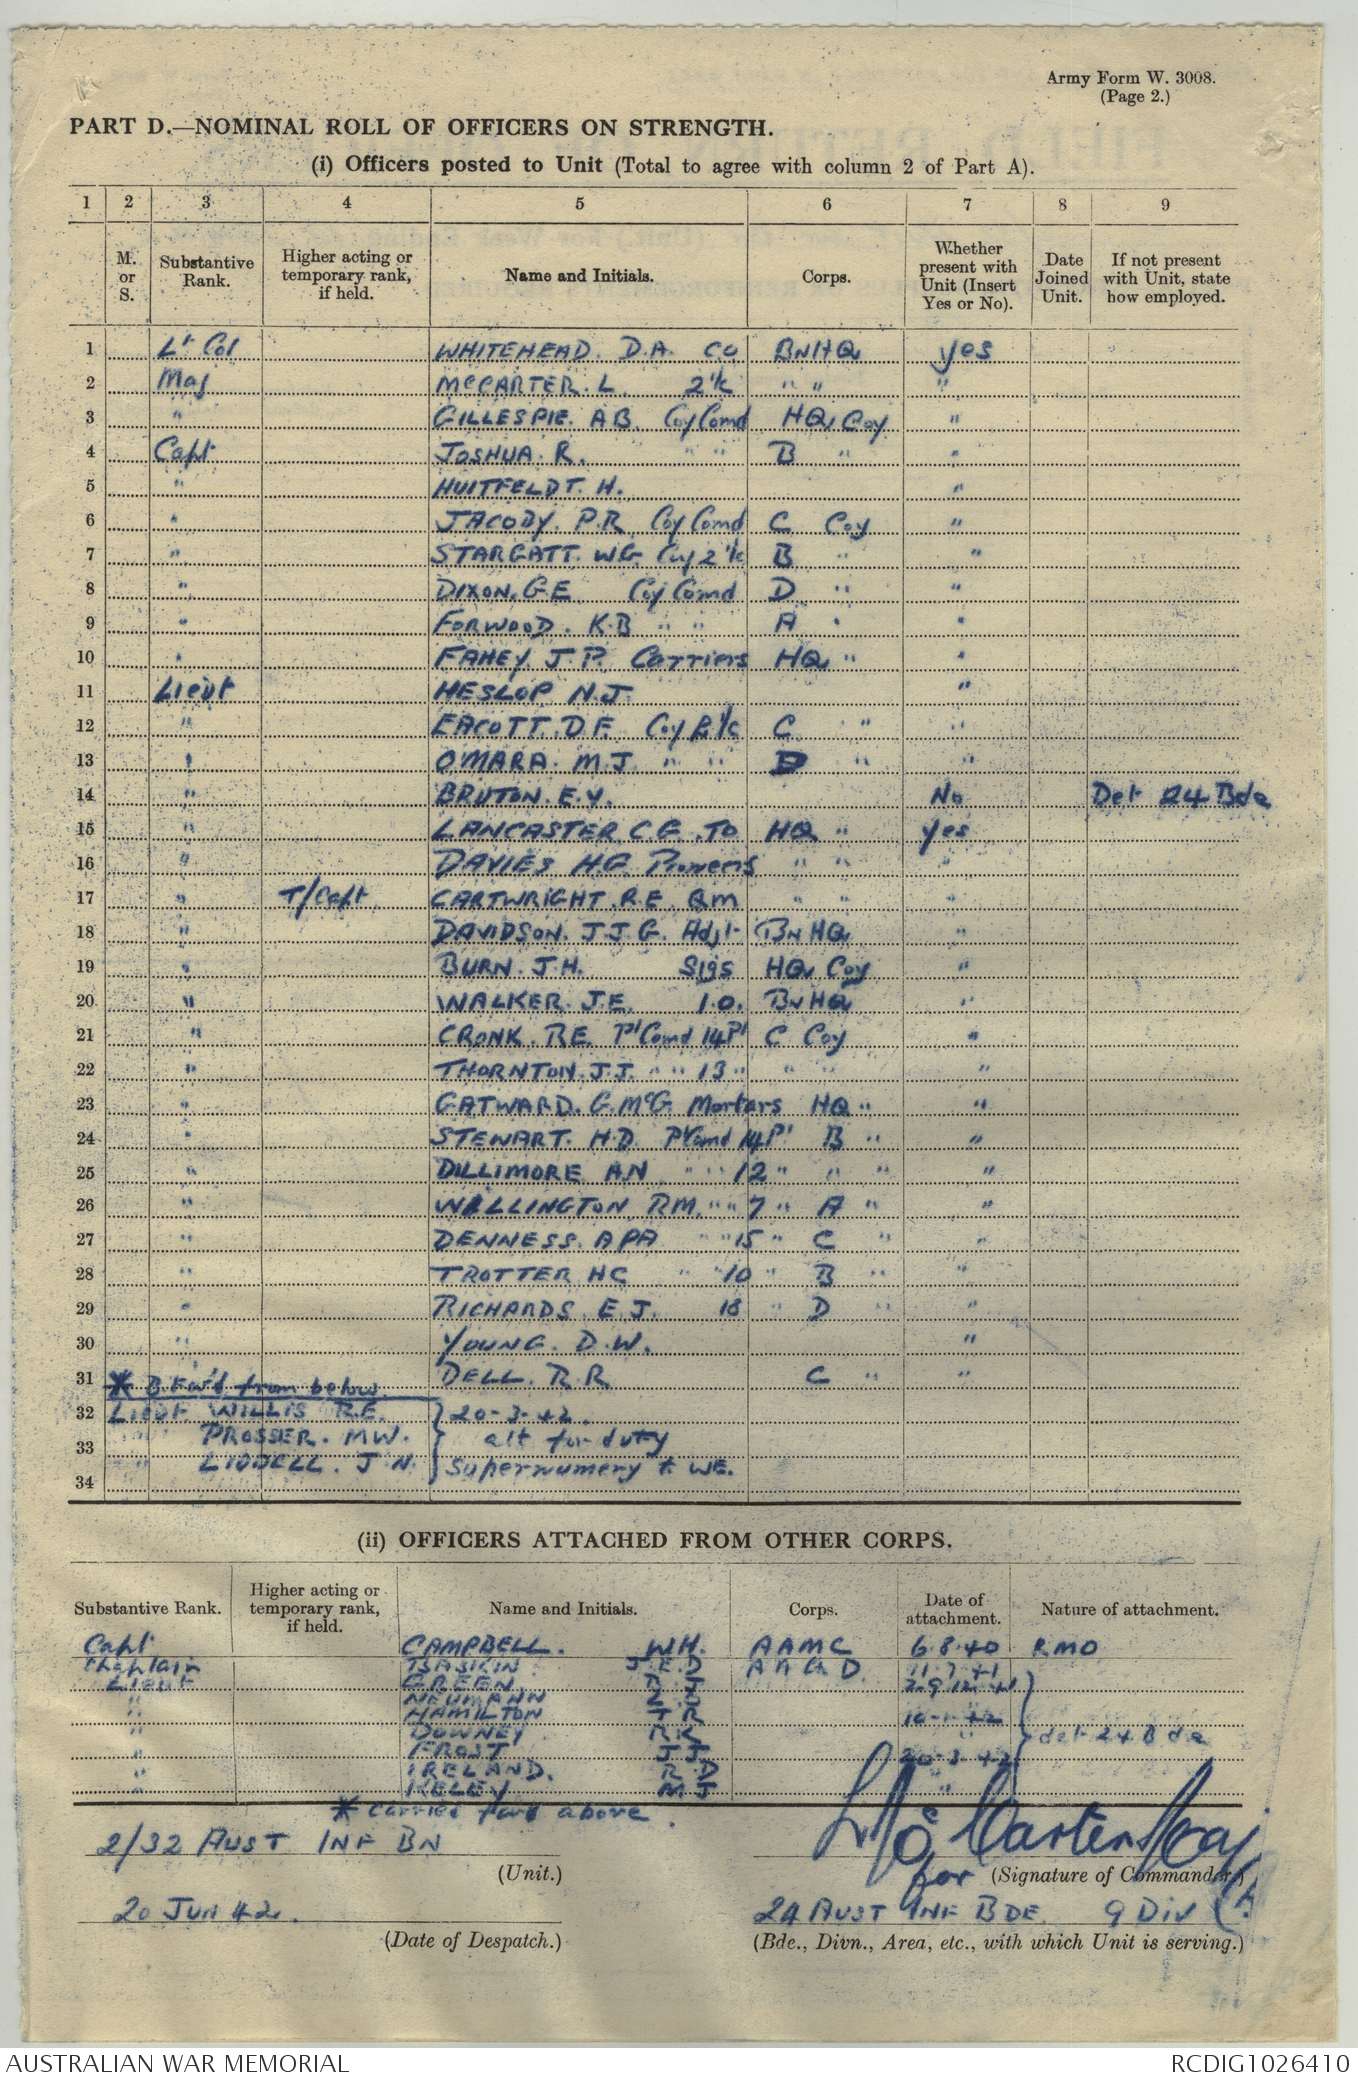 Army Form W. 3008.
(Page 2.)
PART D.—NOMINAL ROLL OF OFFICERS ON STRENGTH.
(i) Officers posted to Unit (Total to agree with column 2 of Part A).
1 2 3 4 5 6 7 8 9
M. or S. Substantive Rank. Higher acting or temporary rank, if held. Name and Initials. Corps. Whether present with Unit (Insert Yes or No). Date Joined Unit. If not present with Unit, state how employed.
1 Lt Col WHITEHEAD. D.A. CO BN HQ yes
2 Maj McCARTER. L. 2 i/c " " "
3 " GILLESPIE. AB. Coy Comd HQ Coy "
4 Capt JOSHUA. R. " " B " "
5 " HUITFELDT. H. "
6 " JACOBY. P.R. Coy Comd C Coy "
7 " STARGATT. WG. Coy 2 i/c B " "
8 " DIXON. G.E. Coy Comd D " "
9 " FORWOOD. K.B " " A " "
10 " FAHEY J.P. Carriers HQ " "
11 Lieut HESLOP N.J. "
12 " EACOTT. D.F. Coy 2 i/c C " "
13 " O'MARA. M.J. " " D " "
14 " BRUTON. E.Y. No Det 24 Bde
15 " LANCASTER C.G. TO HQ " yes
16 " DAVIES H.G. Pioneers " " "
17 " T/Capt CARTWRIGHT. R.E. QM " " "
18 " DAVIDSON. J.J.G. Adjt BN HQ "
19 " BURN. J.H. Sigs HQ Coy "
20 " WALKER. J.E. I.O. BN HQ "
21 " CRONK. R.E. Pl Comd 14 Pl C Coy "
22 " THORNTON. J.J. " " 13 " " " "
23 " GATWARD. G. McG Mortars HQ " "
24 " STEWART. H.D. Pl Comd 14 Pl B " "
25 " DILLIMORE A.N " " 12 " " " "
26 " WALLINGTON. RM. " " 7 " A " "
27 " DENNESS. APA " " 15 " C " "
28 " TROTTER HC " 10 " B " "
29 " RICHARDS. E.J. 18 " D " "
30 " YOUNG. D.W. "
31 DELL. R.R. C " "
* B. Fw'd from below
32 Lieut WILLIS R.E. } 20-3-42.
33 " PROSSER. MW. } att for duty
34 " LIDDELL. J.N. } Supernumery to WE.
(ii) OFFICERS ATTACHED FROM OTHER CORPS.
Substantive Rank. Higher acting or temporary rank, if held. Name and Initials. Corps. Date of attachment. Nature of attachment.
Capt CAMPBELL. W.H. AAMC 6.8.40 RMO
Chaplain TSASKIN J.E.D A A C D. 11.7.41
Lieut GREEN.
" NEUMANN
" HAMILTON T R 10-1-42
" DOWNEY R K " } det 24 Bde
FROST J.J. 20-3-42
" IRELAND. R.D
" KELEY M J "
* Carried fwd above.
2/32 AUST INF BN
(Unit.)
L McCarter Maj
for (Signature of Commander.)
20 JUN 42.
(Date of Despatch.)
24 AUST INF BDE. 9 DIV
(Bde., Divn., Area, etc., with which Unit is serving.)
AUSTRALIAN WAR MEMORIAL
RCDIG1026410